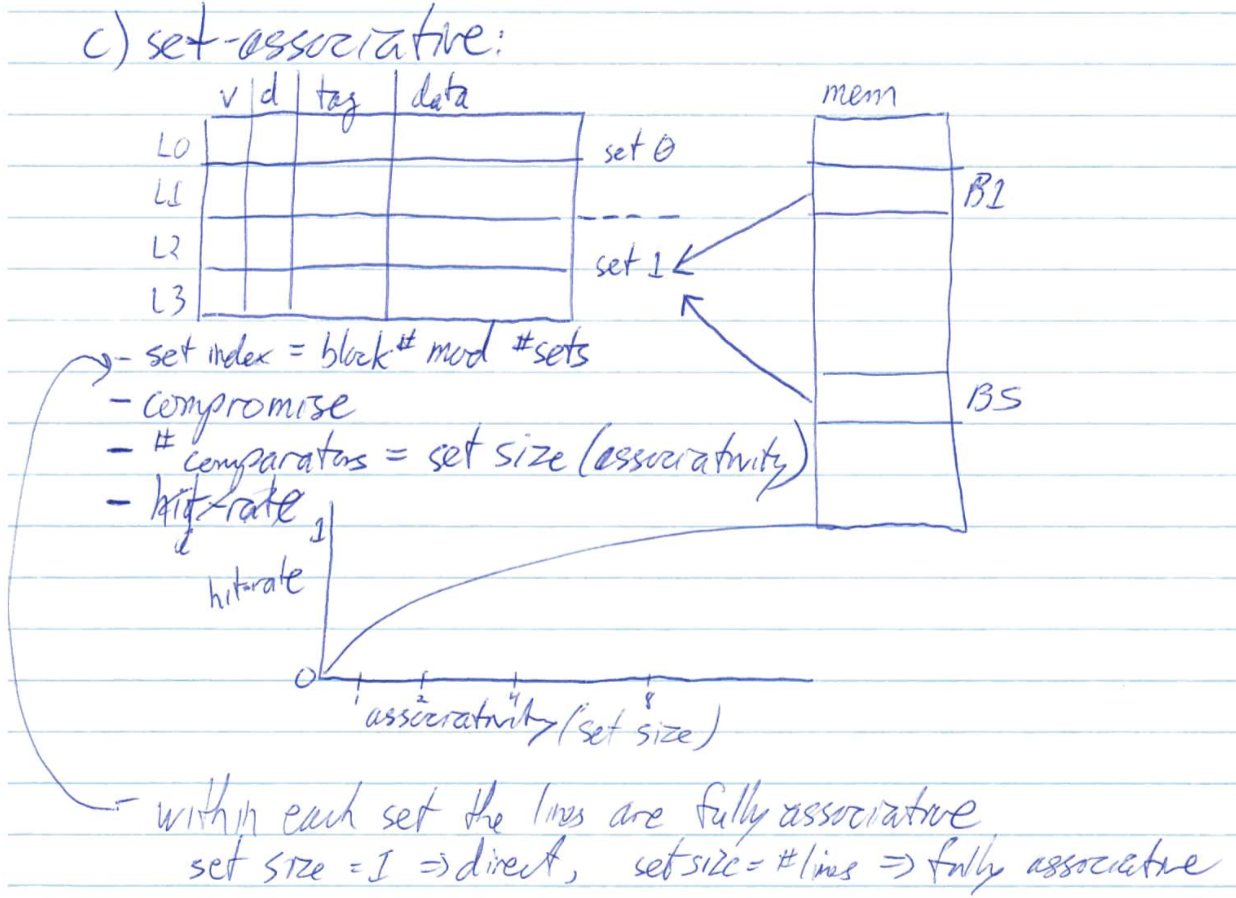 c) set-associative:
v d tag data
mem
L0
set 0
L1
B1
L2
set 1
L3
- set index = block # mod # sets
B5
- compromise
- # comparators = set size (associativity)
- hit-rate
1
hit-rate
0
1 2 4 8
associativity (set size)
- within each set the lines are fully associative
set size = 1 => direct, set size = # lines => fully associative